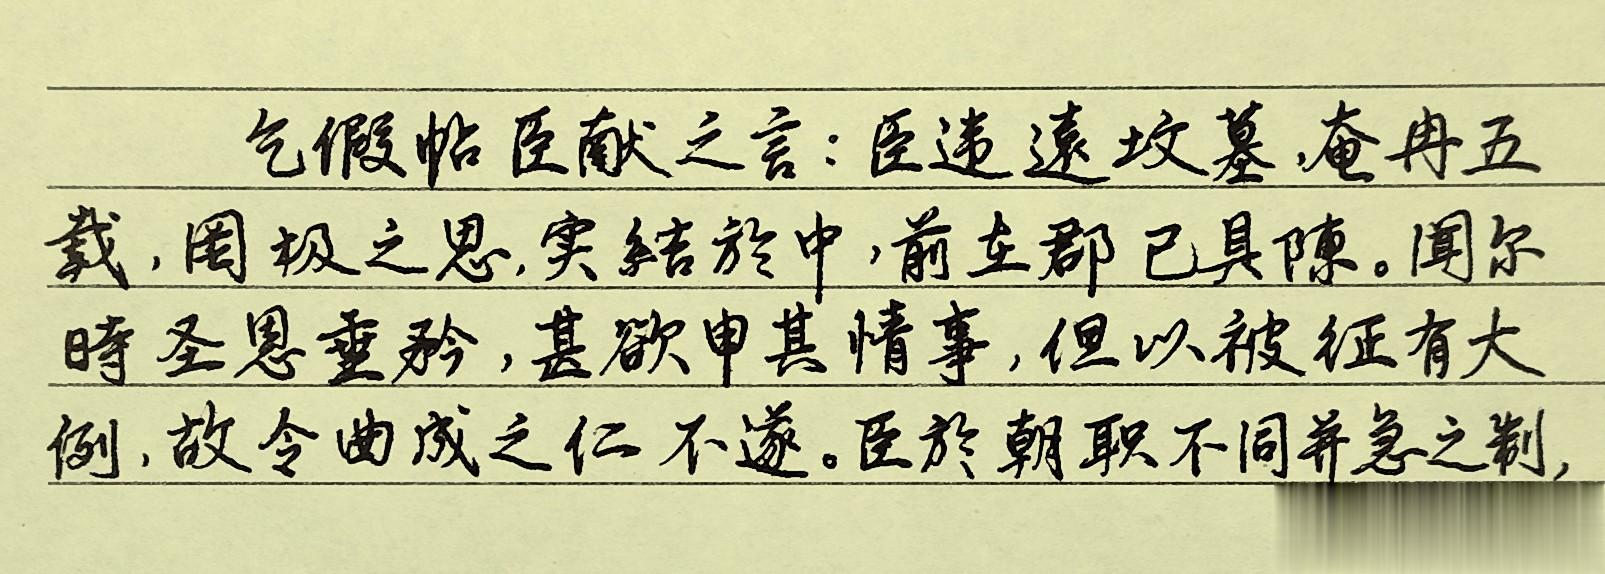 乞假帖臣献之言：臣违遠坟墓，奄冉五
载，罔极之思，实結於中，前在郡已具陳。闻尔
時圣恩垂矜，甚欲申其情事，但以被征有大
例，故令曲成之仁不遂。臣於朝职不同并急之制，